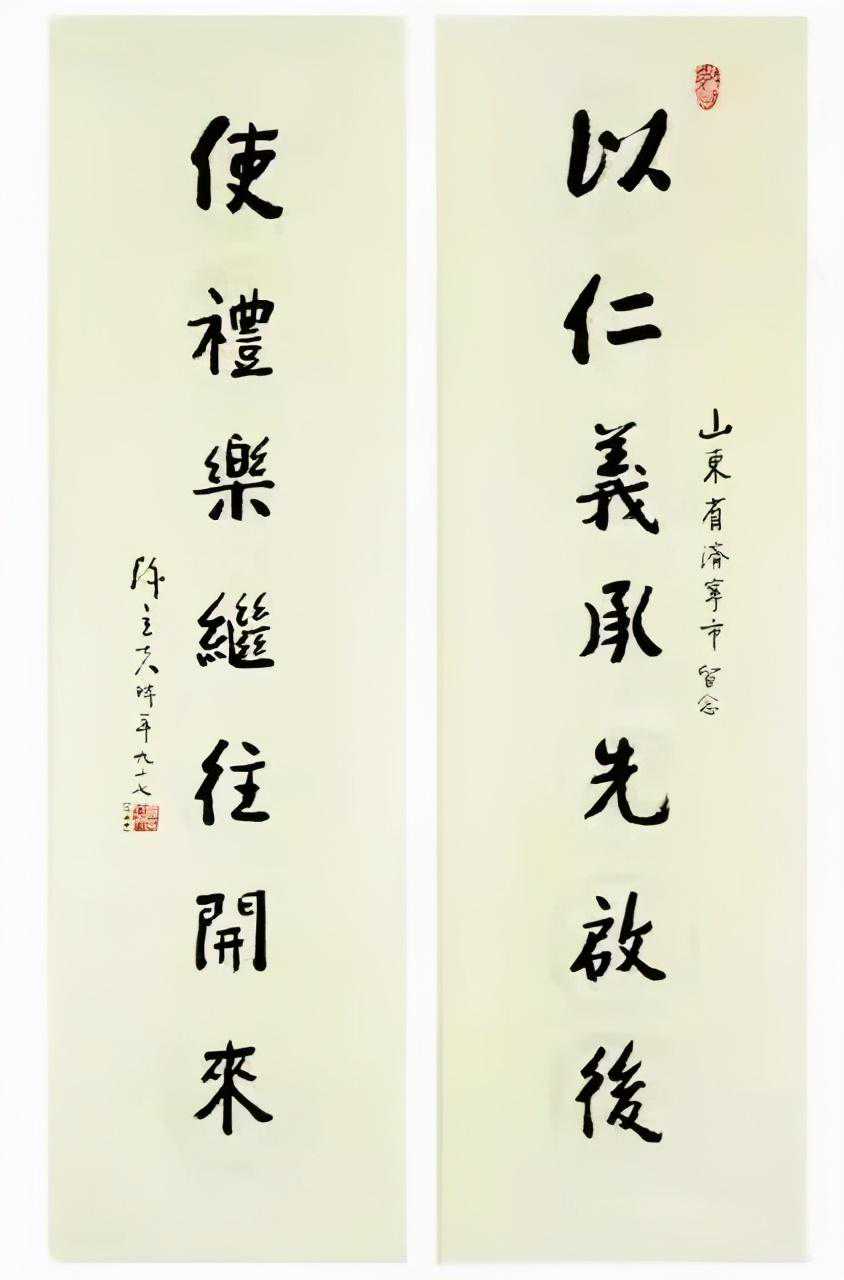 以仁義承先啟後
山東省濟寧市留念
使禮樂繼往開來
陳立夫時年九十七